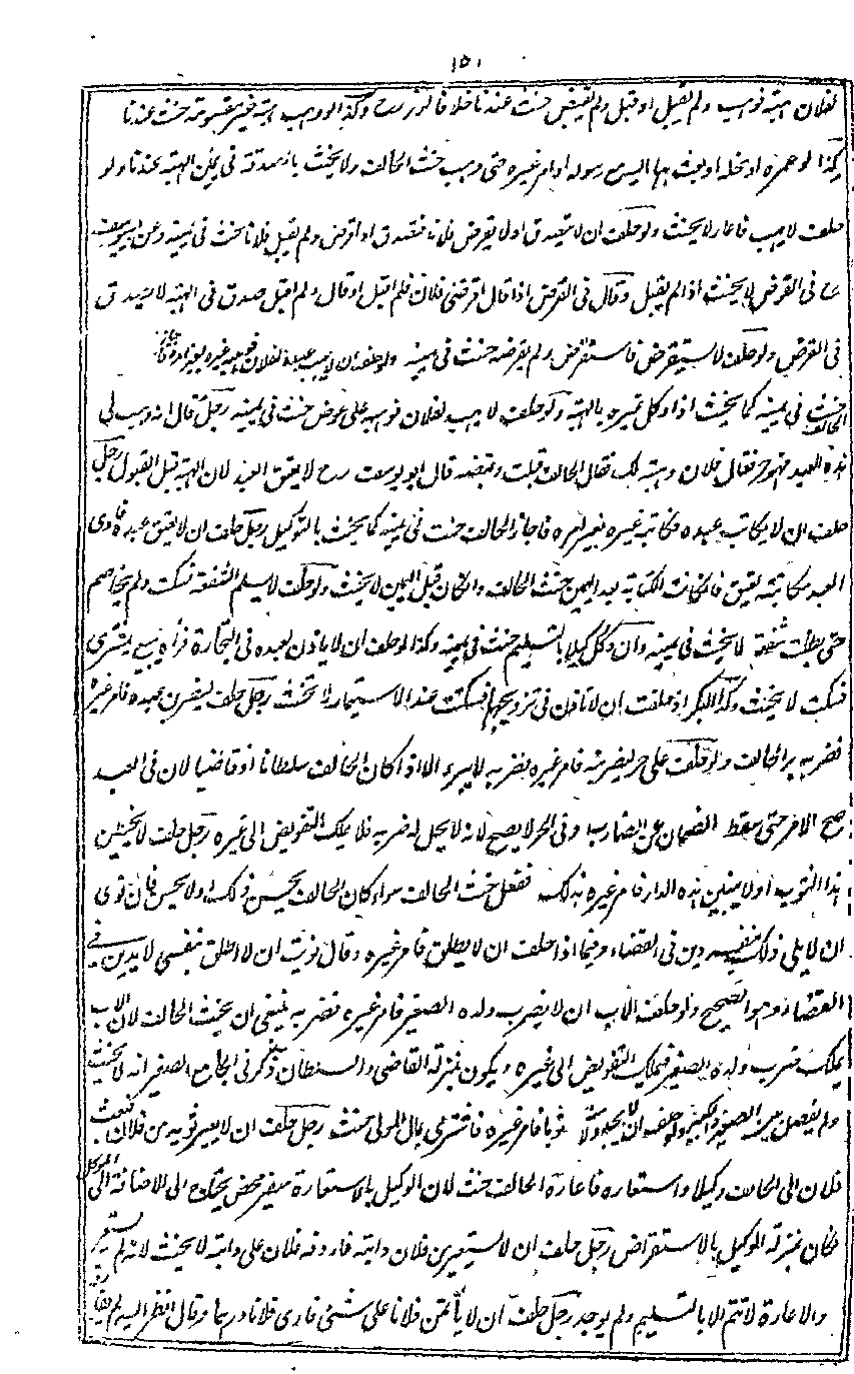 ١٥١
لفلان هبة فوهب ولم يقبل او قبل ولم يقبض حنث عندنا خلافا لزفر رح وكذا لو وهب هبة غير مقسومة حنث عندنا
كذا لو عمره او نحله او بعث بها اليه مع رسوله او امر غيره حتى وهب حنث الحالف ولا يحنث بالصدقة في يمين الهبة عندنا ولو
حلف لا يهب فاعار لا يحنث ولو حلف ان لا يتصدق او لا يقرض فلانا فتصدق او اقرض ولم يقبل فلان حنث في يمينه وعن ابي يوسف
رح في القرض لا يحنث اذا لم يقبل وقال في القرض اذا قال اقرضني فلان فلم اقبل او قال ولم اقبل صدق في الهبة لا يصدق
في القرض ولو حلف لا يستقرض فاستقرض ولم يقرضه حنث في يمينه ولو حلف ان لا يهب عبده لفلان فوهبه غيره بغير امره فاجاز
الحالف حنث في يمينه كما يحنث اذا وكل غيره بالهبة ولو حلف لا يهب لفلان فوهبه على عوض حنث في يمينه رجل قال ان وهب لي
هذا العبد فهو حر فقال فلان وهبته لك فقال الحالف قبلت وقبضه قال ابو يوسف رح لا يعتق العبد لان الهبة قبل القبول رجل
حلف ان لا يكاتب عبده فكاتبه غيره بغير امره فاجاز الحالف حنث في يمينه كما يحنث بالتوكيل رجل حلف ان لا يعتق عبده فادى
العبد مكاتبته يعتق فان كانت الكتابة بعد اليمين حنث الحالف وان كان قبل اليمين لا يحنث ولو حلف لا يسلم الشفعة فسكت ولم يخاصم
حتى بطلت شفعته لا يحنث في يمينه وان وكل وكيلا بالتسليم حنث في يمينه وكذا لو حلف ان لا ياذن لعبده في التجارة فرآه يبيع ويشترى
فسكت لا يحنث وكذا البكر اذا حلفت ان لا تاذن في تزويجها فسكتت عند الاستيمار لا تحنث رجل حلف ليضربن عبده فامر غيره
فضربه بر الحالف ولو حلف على حر ليضربنه فامر غيره بضربه لا يبر الا اذا كان الحالف سلطانا او قاضيا لان في العبد
صح الامر حتى سقط الضمان عن الضارب وفي الحر لا يصح لانه لا يحل له ضربه فلا يملك التفويض الى غيره رجل حلف لا يخيطن
هذا الثوب او لا يبنين هذه الدار فامر غيره بذلك ففعل حنث الحالف سواء كان الحالف يحسن ذلك او لا يحسن فان نوى
ان لا يلي ذلك بنفسه دين في القضاء وفيما اذا حلف ان لا يطلق فامر غيره وقال نويت ان لا اطلق بنفسي لا يدين في
القضاء وهو الصحيح ولو حلف الاب ان لا يضرب ولده الصغير فامر غيره فضربه ينبغي ان يحنث الحالف لان الاب
يملك ضرب ولده الصغير فيملك التفويض الى غيره ويكون بمنزلة القاضي والسلطان وذكر في الجامع الصغير انه لا يحنث
ولم يفصل بين الصغير والكبير ولو حلف ان لا ثوبا فامر غيره فاشترى بمال المولى حنث رجل حلف ان لا يعير ثوبه من فلان فبعث
فلان الى الحالف وكيلا واستعاره فاعاره الحالف حنث لان الوكيل بالاستعارة سفير محض يحتاج الى الاضافة الى الموكل
فكان بمنزلة الوكيل بالاستقراض رجل حلف ان لا يستعير من فلان دابته فاردفه فلان على دابته لا يحنث لانه لم يستعير
والاعارة لا تتم الا بالتسليم ولم يوجد رجل حلف ان لا يأتمن فلانا على شئ فارى فلانا درهما وقال انظر اليه لم